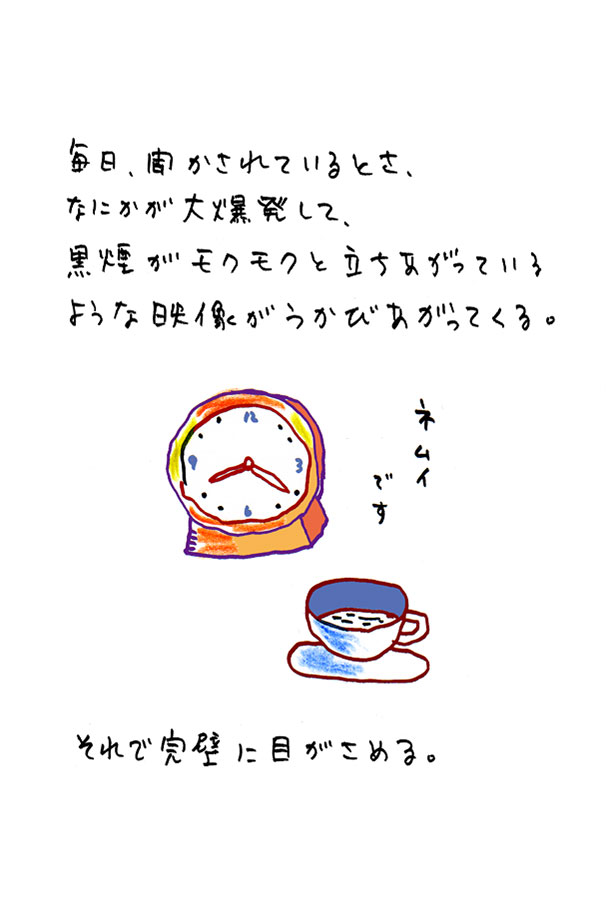 毎日、聞かされているとさ、
なにかが大爆発して、
黒煙がモクモクと立ちあがっている
ような映像がうかびあがってくる。
12
3
6
9
ネムイ
です
それで完璧に目がさめる。